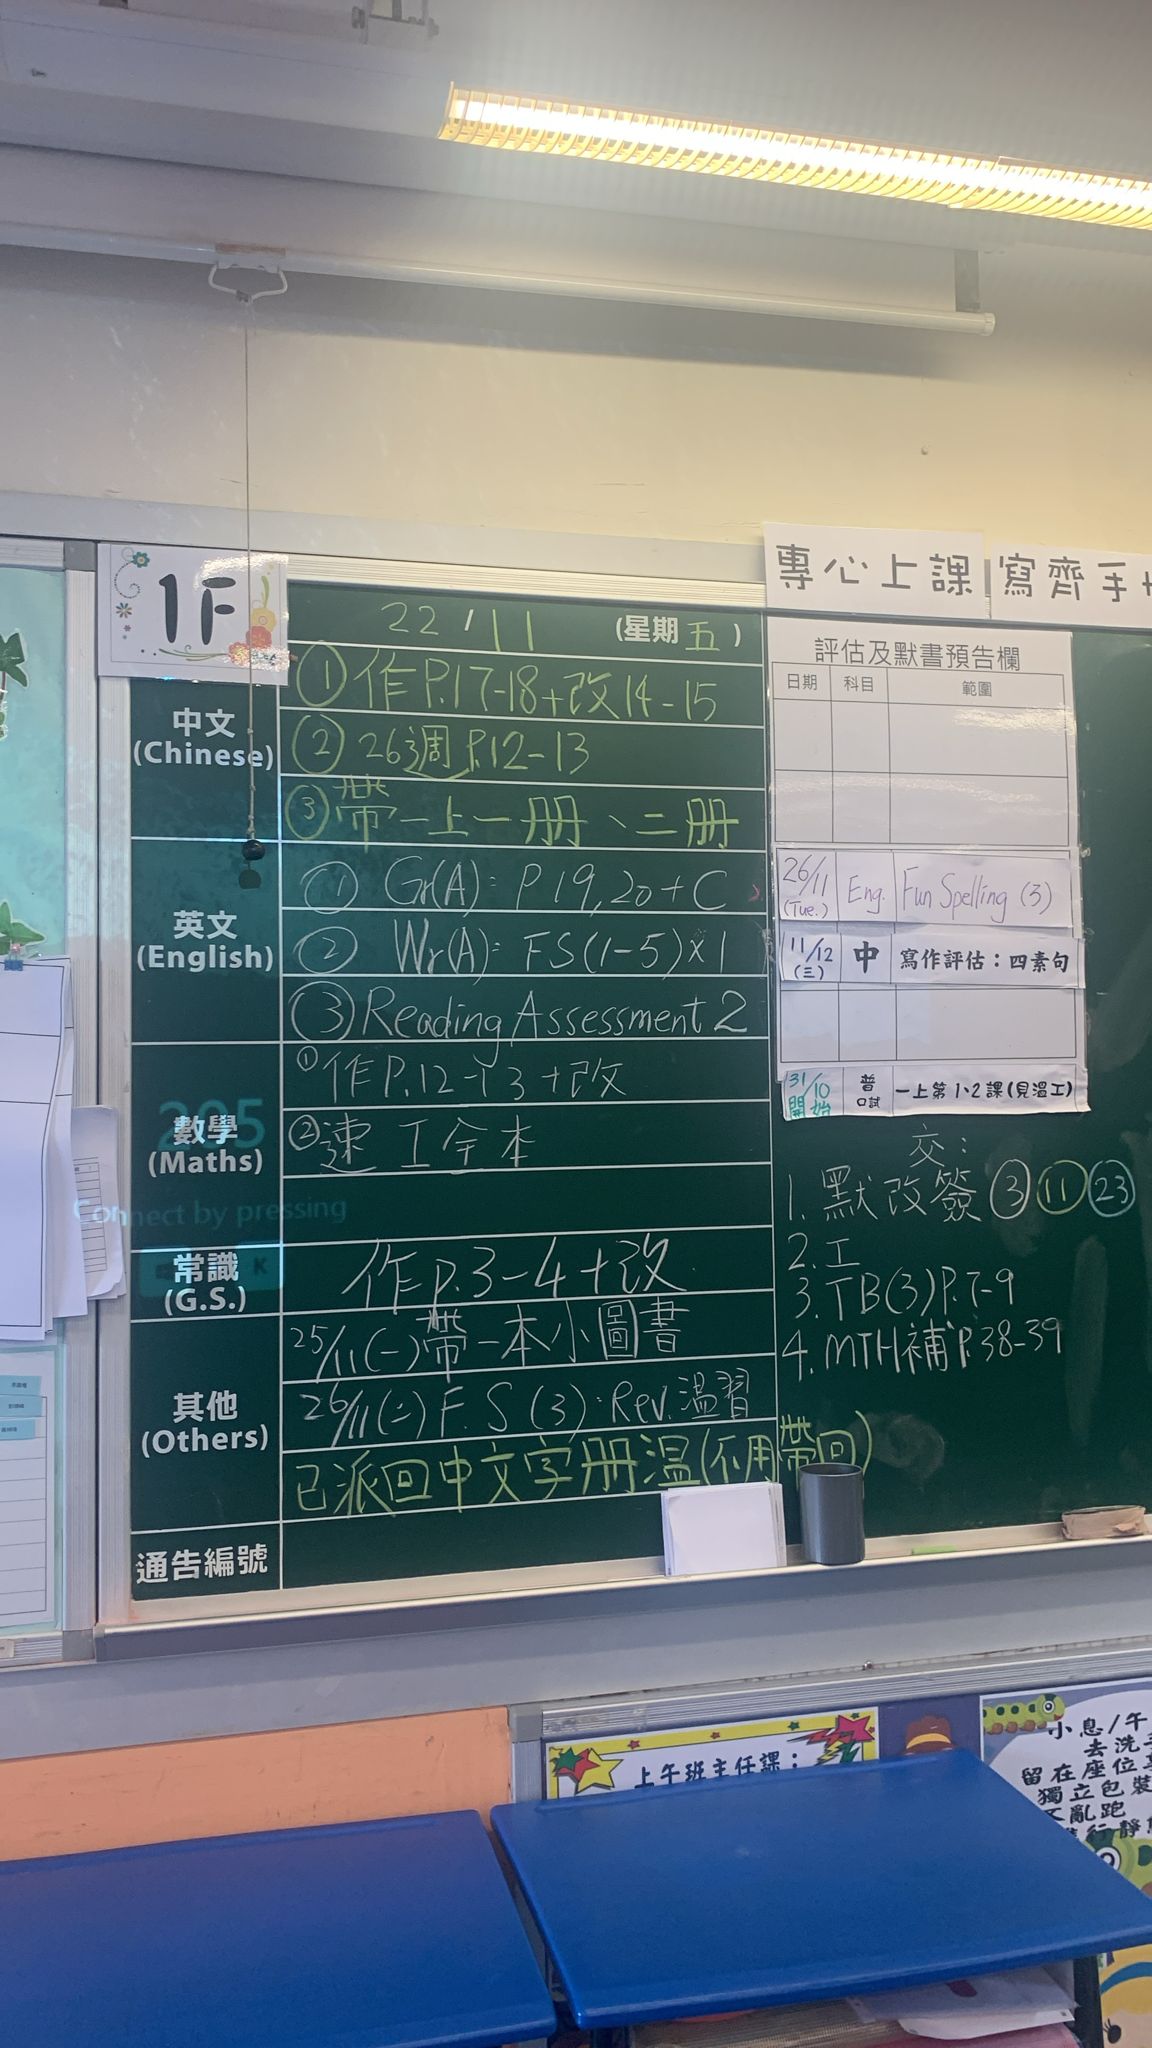 專心上課
寫齊手
1F
22/11 (星期五)
中文
(Chinese)
① 作P.17-18+改14-15
② 26週P.12-13
③ 帶一上一册、二册
英文
(English)
① Gr(A): P 19, 20 + C
② Wr(A): FS(1-5)×1
③ Reading Assessment 2
數學
(Maths)
① 作P.12-13+改
② 速工全本
205
Connect by pressing
K
常識
(G.S.)
作P.3-4+改
其他
(Others)
25/11(一)帶一本小圖書
26/11(二)F.S(3):Rev.溫習
已派回中文字册溫(不用帶回)
通告編號
評估及默書預告欄
日期 科目 範圍
26/11 (Tue.) Eng. Fun Spelling (3)
11/12 (三) 中 寫作評估：四素句
31/10 開始 普 口試 一上第1、2課(見溫工)
交：
1. 默改簽 ③ ⑪ ㉓
2. 工
3. TB(3)P.7-9
4. MTH補P.38-39
上午班主任課：
小息/午
去洗手
留在座位
獨立包裝
不亂跑
行靜